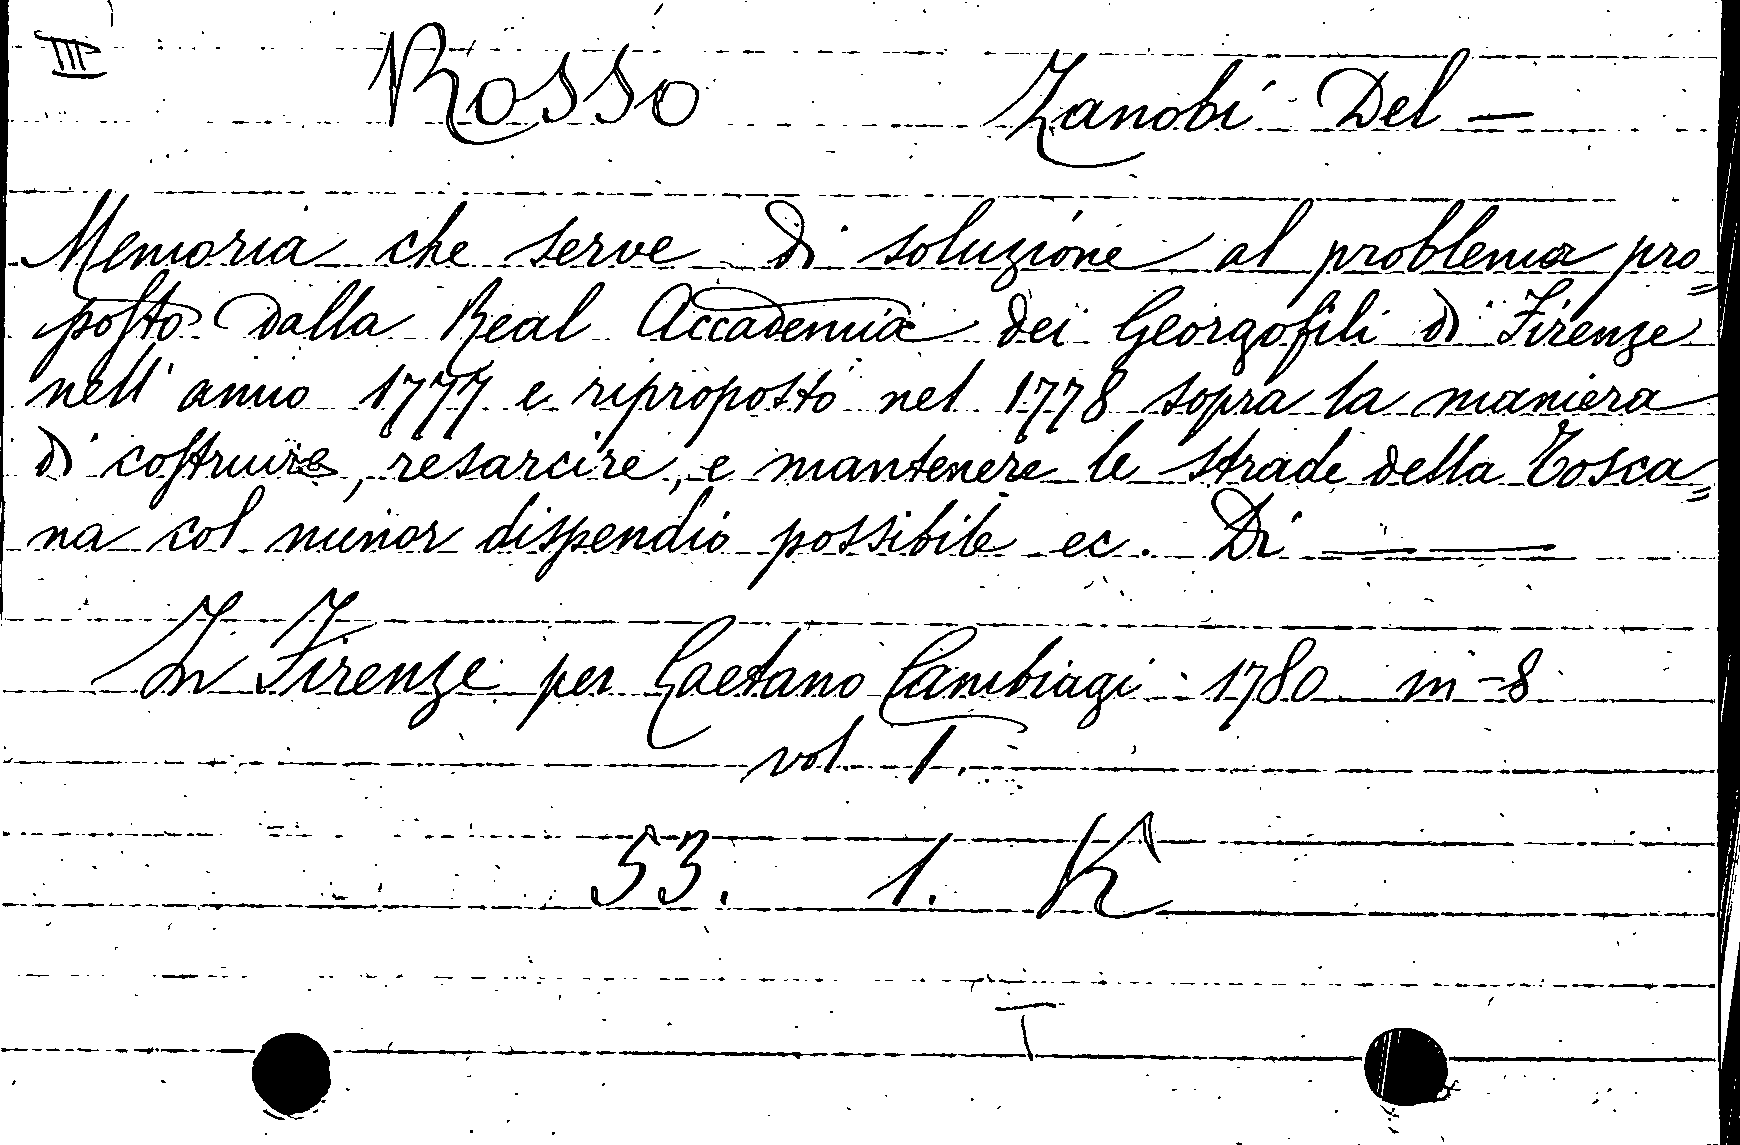 III Rosso Zanobi Del —
Memoria che serve di soluzione al problema pro=
posto dalla Real Accademia dei Georgofili di Firenze
nell'anno 1777 e riproposto nel 1778 sopra la maniera
di costruire, resarcire, e mantenere le strade della Tosca=
na col minor dispendio possibile ec. Di ——
In Firenze per Gaetano Cambiagi 1780 in-8
vol. 1.
53. 1. K
T